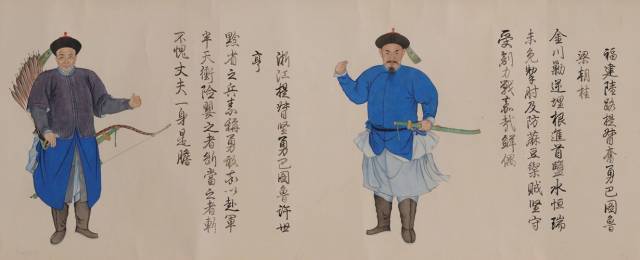 福建陸路提督奮勇巴圖魯
梁朝桂
金川勦逆埋根進首鹽水恒瑞
未免掣肘及防蔴豆禦賊堅守
受創力戰嘉哉鮮偶
浙江提督堅勇巴圖魯許世
亨
黔省之兵素稱勇敢率以赴軍
半天衝險嬰之者斷當之者斬
不愧丈夫一身是膽